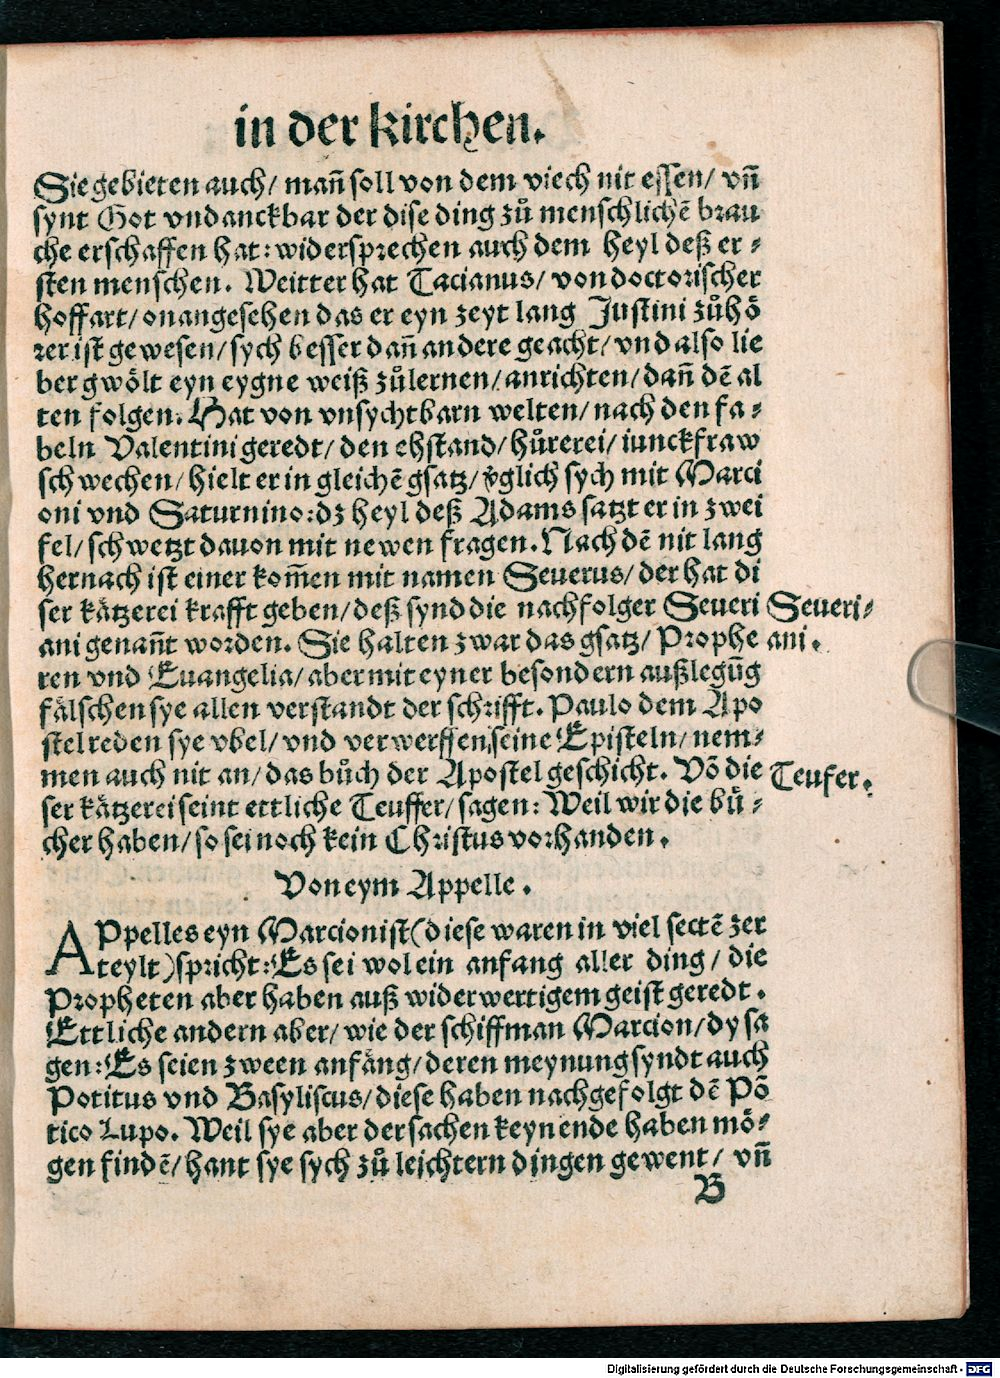 in der kirchen.
Sie gebieten auch/ mañ soll von dem viech nit essen/ vñ
synt Got vndanckbar der dise ding zů menschlichē brau
che erschaffen hat: widersprechen auch dem heyl deß er⸗
sten menschen. Weitter hat Tacianus/ von doctorischer
hoffart/ onangesehen das er eyn zeyt lang Justini zůhö
rer ist gewesen/ sych besser dañ andere geacht/ vnd also lie
ber gwölt eyn eygne weiß zůlernen/ anrichten/ dañ dē al
ten folgen. Hat von vnsychtbarn welten/ nach den fa⸗
beln Valentini geredt/ den ehstand/ hůrerei/ iunckfraw
schwechen/ hielt er in gleichē gsatz/ v̄glich sych mit Marci
oni vnd Saturnino: dz heyl deß Adams satzt er in zwei
fel/ schwetzt dauon mit newen fragen. Nach dē nit lang
hernach ist einer kom̄en mit namen Seuerus/ der hat di
ser kätzerei krafft geben/ deß synd die nachfolger Seueri
ani genañt worden. Sie halten zwar das gsatz/ Prophe
ren vnd Euangelia/ aber mit eyner besondern außlegūg
fälschen sye allen verstandt der schrifft. Paulo dem Apo
stel reden sye vbel/ vnd verwerffen seine Episteln/ nem⸗
men auch nit an/ das bůch der Apostel geschicht. Vō die
ser kätzerei seint ettliche Teuffer/ sagen: Weil wir die bü⸗
cher haben/ so sei noch kein Christus vorhanden.
Seueri⸗
ani.
Teufer.
Von eym Appelle.
APpelles eyn Marcionist (diese waren in viel sectē zer
teylt) spricht: Es sei wol ein anfang aller ding/ die
Propheten aber haben auß widerwertigem geist geredt.
Ettliche andern aber/ wie der schiffman Marcion/ dy sa
gen: Es seien zween anfäng/ deren meynung syndt auch
Potitus vnd Basyliscus/ diese haben nachgefolgt dē Pō
tico Lupo. Weil sye aber der sachen keyn ende haben mö⸗
gen findē/ hant sye sych zů leichtern dingen gewent/ vñ
B
Digitalisierung gefördert durch die Deutsche Forschungsgemeinschaft - DFG